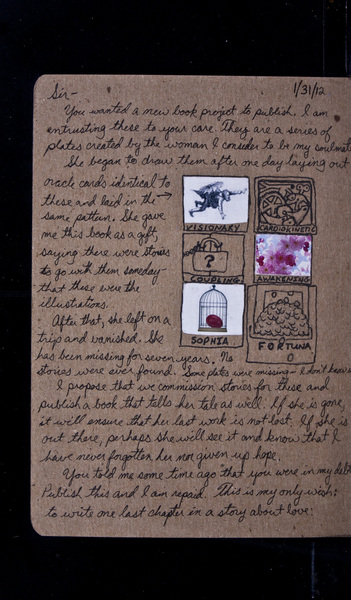 Sir- 1/31/12
You wanted a new book project to publish. I am
entrusting these to your care. They are a series of
plates created by the woman I consider to be my soulmate.
She began to draw them after one day laying out
oracle cards identical to
these and laid in the →
same pattern. She gave
me this book as a gift,
saying there were stories
to go with them someday-
that these were the
illustrations.
VISIONARY CARDIOKINETIC
?
COUPLING AWAKENING
SOPHIA FORTUNA
0
After that, she left on a
trip and vanished. She
has been missing for seven years. No
stories were ever found. Some plates were missing - I don't know
I propose that we commission stories for these and
publish a book that tells her tale as well. If she is gone,
it will ensure that her last work is not lost. If she is
out there, perhaps she will see it and know that I
have never forgotten her nor given up hope.
You told me some time ago that you were in my debt.
Publish this and I am repaid. This is my only wish:
to write one last chapter in a story about love.